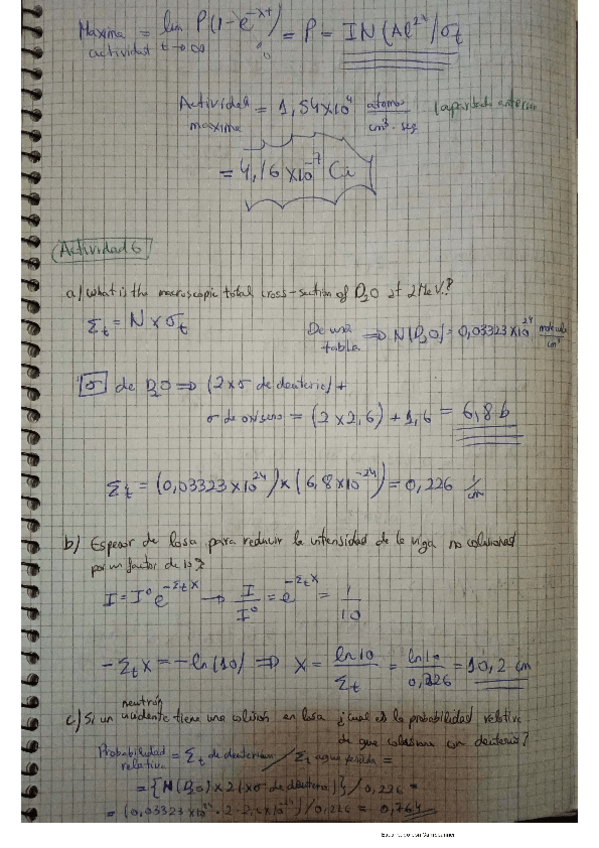 Maxima = lim P(1-e^-λt) = P = IN(Al^27)σt
actividad t→∞ 0
Actividad = 1,54x10^4 atomos/cm³·seg (apartado anterior
maxima
= 4,16 x10^-7 Ci
Actividad 6
a) What is the macroscopic total cross-section of D2O at 2 MeV?
Σt = N x σt
De una tabla ⇒ N(D2O) = 0,03323 x10^24 molecula/cm³
σ de D2O ⇒ (2 x σ de deuterio) +
σ de oxigeno = (2 x 2,6) + 1,6 = 6,8 b
Σt = (0,03323 x10^24) x (6,8 x10^-24) = 0,226 1/cm
b) Espesor de losa para reducir la intensidad de la viga no colisionad
por un factor de 10?
I = I° e^-Σt x → I/I° = e^-Σt x = 1/10
-Σt x = -ln(10) ⇒ x = ln10/Σt = ln10/0,226 = 10,2 cm
neutrón
c) Si un incidente tiene una colisión en losa ¿cual es la probabilidad relative
de que colisione con deuterio?
Probabilidad relativa = Σt de deuterium / Σt agua pesada =
= {N(D2O) x 2(xσ de deuterio)} / 0,226 =
= (0,03323 x10^24 · 2 · 2,6 x10^-24) / 0,226 = 0,764